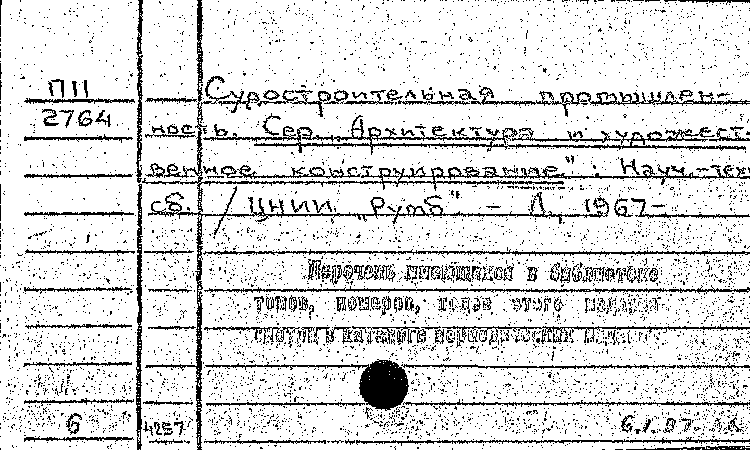 ПП
2764
Судостроительная промышлен-
ность. Сер. Архитектура и художест-
венное конструирование": Науч.-тех
сб. / ЦНИИ „Румб" - Л., 1967-
Перечень имеющихся в библиотеке
томов, номеров, годов этого издания
смотри в каталоге периодических
6
4257